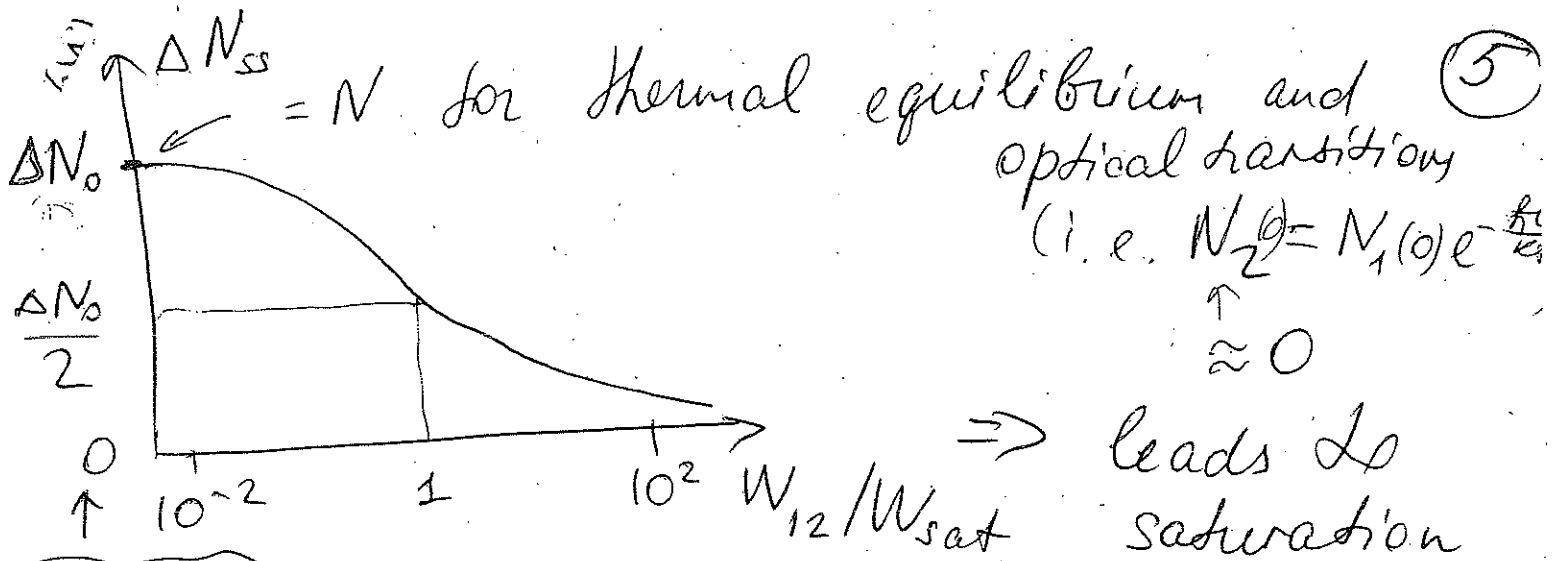 ΔN_ss
= N for thermal equilibrium and ⑤
ΔN_0
optical transitions
(i.e. N_2(0) = N_1(0) e^-
ΔN_0
2
≈ 0
0
10^-2 1 10^2 W_12/W_sat
⇒ leads to
saturation